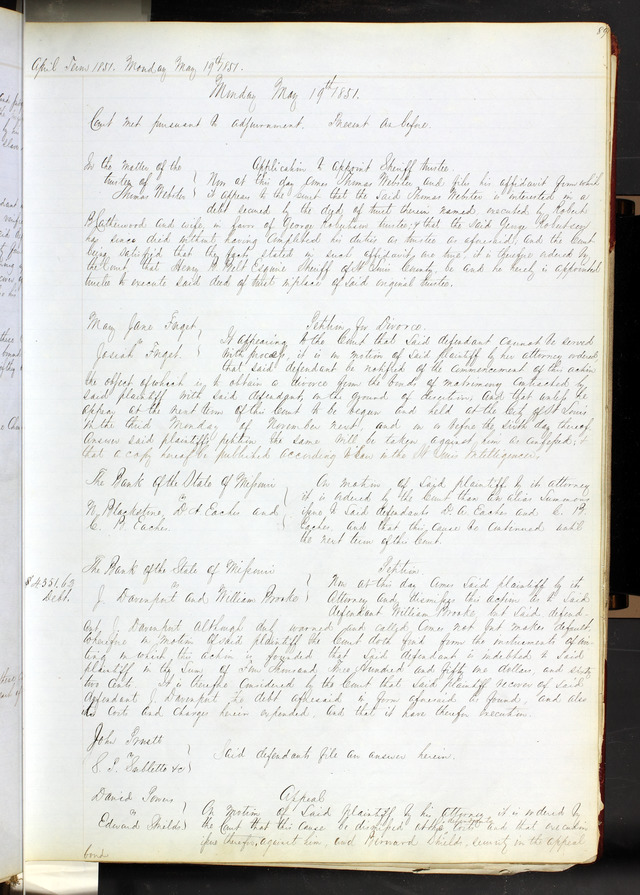 89
April Term 1851. Monday May 19th 1851.
Monday May 19th 1851.
Court met pursuant to adjournment. Present as before.
In the matter of the Application to appoint Sheriff trustee.
trustee of Now at this day comes Thomas Webster and files his affidavit from which
Thomas Webster it appears to the Court that the said Thomas Webster is interested in a
debt secured by the deed of trust therein named executed by Robert
B. Catherwood and wife, in favor of George Robertson trustee, & that the said George Robertson
has since died without having completed his duties as trustee as aforesaid, and the Court
being satisfied that the facts stated in such affidavit are true, it is therefore ordered by
the Court that Henry Belt Esquire Sheriff of St Louis County, be and he hereby is appointed
trustee to execute said deed of trust in place of said original trustee.
Mary Jane Fuget Petition for Divorce.
vs It appearing to the Court that said defendant cannot be served
Josiah Fuget. with process, it is on motion of said plaintiff by her attorney ordered
that said defendant be notified of the commencement of this action
the object of which is to obtain a divorce from the bonds of matrimony contracted by
said plaintiff with said defendant, on the ground of desertion, and that unless he
appear at the next term of this Court to be begun and held at the City of St Louis
on the third Monday of November next, and on or before the sixth day thereof
answer said plaintiff's petition the same will be taken against him as confessed; &
that a copy hereof be published according to law in the St Louis Intelligencer.
The Bank of the State of Missouri On motion of said plaintiff by its attorney
vs it is ordered by the Court that an alias summons
N. Blackstone, D. A. Eacher and issue to said defendants D. A. Eacher and C. P.
C. P. Eacher. Eacher, and that this cause be continued until
the next term of the Court.
The Bank of the State of Missouri Petition
$4351.62 vs Now at this day comes said plaintiff by its
Debt. J. Davenport and William Brooke attorney and dismisses this action as to said
defendant William Brooke, but said defend-
ant J. Davenport although duly warned and called, comes not but makes default,
wherefore on motion of said plaintiff the Court doth find from the instrument of wri-
ting on which this action is founded that said defendant is indebted to said
plaintiff in the sum of four thousand three hundred and fifty one dollars, and sixty
two cents. It is therefore considered by the Court that said plaintiff recover of said
defendant J. Davenport the debt aforesaid in form aforesaid so found, and also
its costs and charges herein expended, and that it have therefor execution.
John Pruitt
vs Said defendants file an answer herein.
S. P. Sublette &c
David Powers Appeal
vs On motion of said plaintiff by his attorney it is ordered by
Edward Shields the Court that this cause be dismissed at the costs and that execution
issue therefor against him, and Bernard Shields, security in the appeal
bond